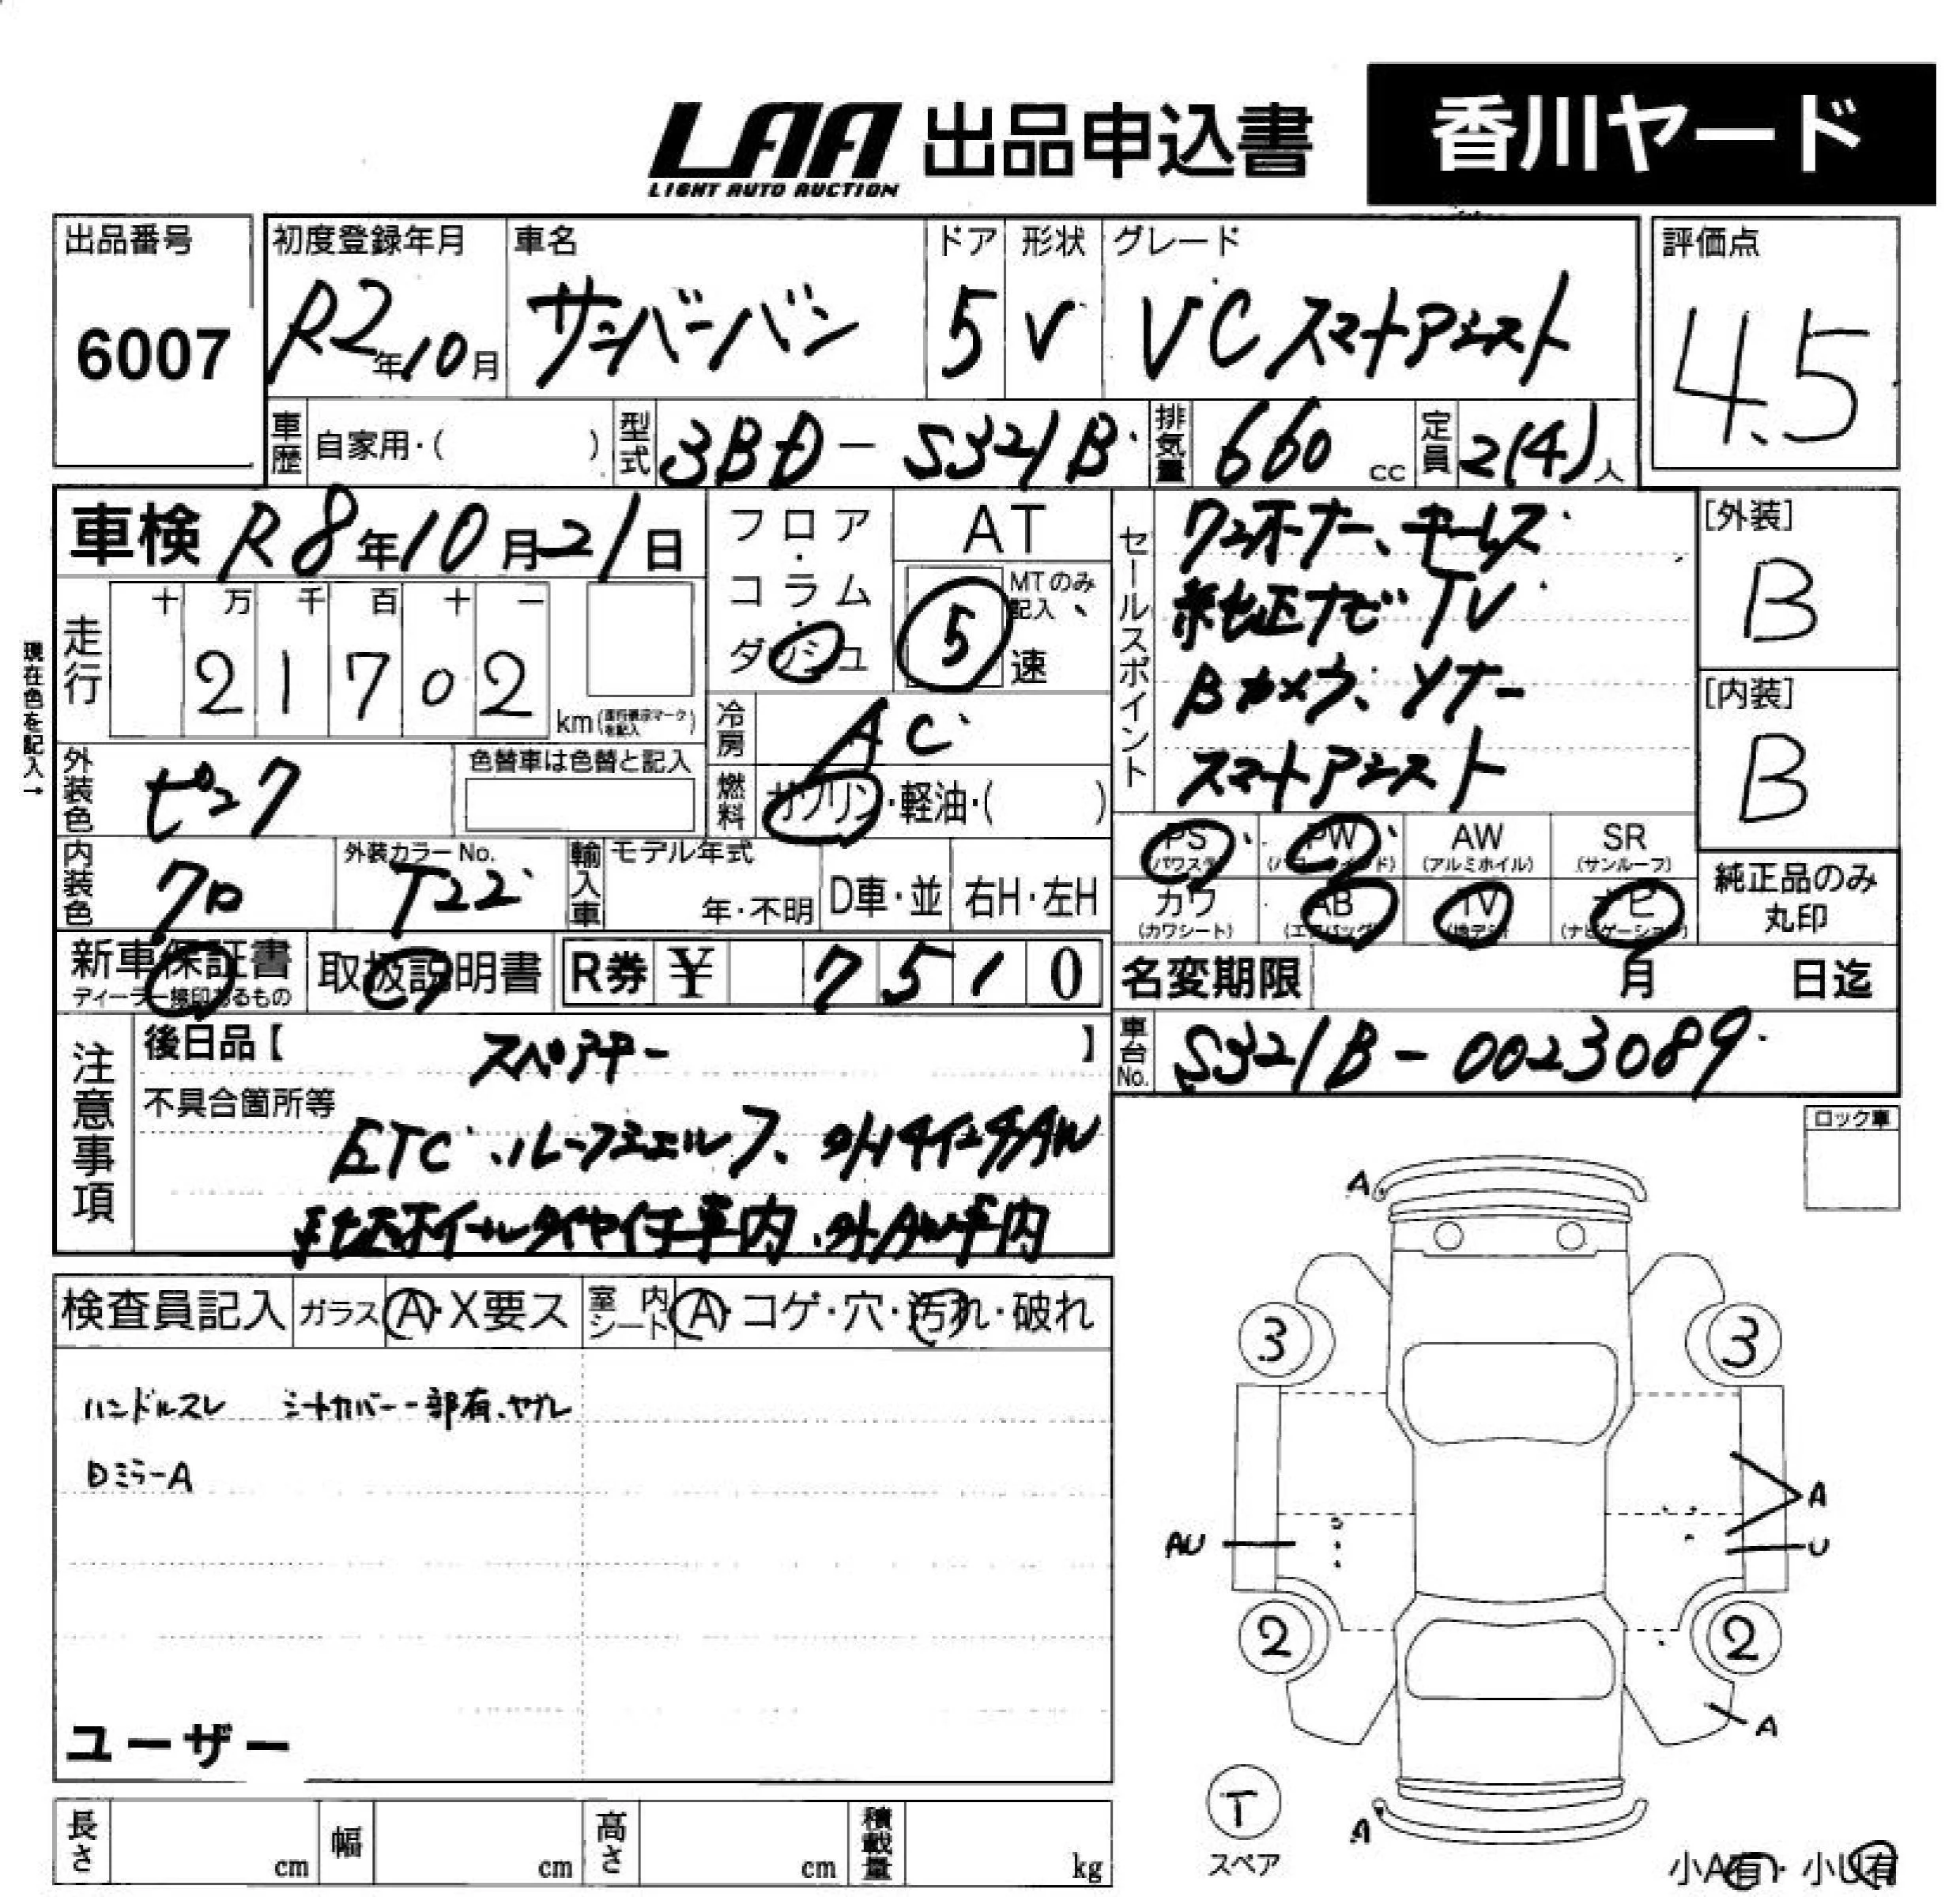 LAA 出品申込書 香川ヤード
LIGHT AUTO AUCTION
出品番号 初度登録年月 車名 ドア 形状 グレード 評価点
6007 R2年10月 サンバーバン 5 V VCスマートアシスト 4.5
車歴 自家用・( ) 型式 3BD-S321B 排気量 660 cc 定員 2(4)人
車検 R8年10月21日 フロア・コラム・ダッシュ AT
5速 MTのみ記入
走行 十 万 千 百 十 一
2 1 7 0 2 km
現在色を記入→
冷房 AC
外装色 ピンク 色替車は色替と記入
燃料 ガソリン・軽油・( )
内装色 クロ 外装カラーNo. T22
輸入車 モデル年式 年・不明 D車・並 右H・左H
セールスポイント ワンオーナー、キーレス
純正ナビ TV
Bカメラ、ソナー
スマートアシスト
[外装]
B
[内装]
B
PS PW AW SR
(パワステ) (パワーウインド) (アルミホイル) (サンルーフ)
カワ AB TV ナビ
(カワシート) (エアバッグ) (地デジ) (ナビゲーション)
純正品のみ
丸印
新車保証書 取扱説明書 R券 ¥ 7510
ディーラー捺印あるもの
名変期限 月 日迄
車台No. S321B-0023089
注意事項 後日品【 スペアキー 】
不具合箇所等
ETC、ルーフシェルフ、外14インチAW
純正ホイールタイヤ付車内、外AW車内
ロック車
検査員記入 ガラス A・X要ス 室内シート A・コゲ・穴・汚れ・破れ
ハンドルスレ シートカバー一部有、ヤブレ
DミラーA
ユーザー
A
3 3
A
AU U
2 2
A
T
スペア
A
小A有・小U有
長さ cm 幅 cm 高さ cm 積載量 kg